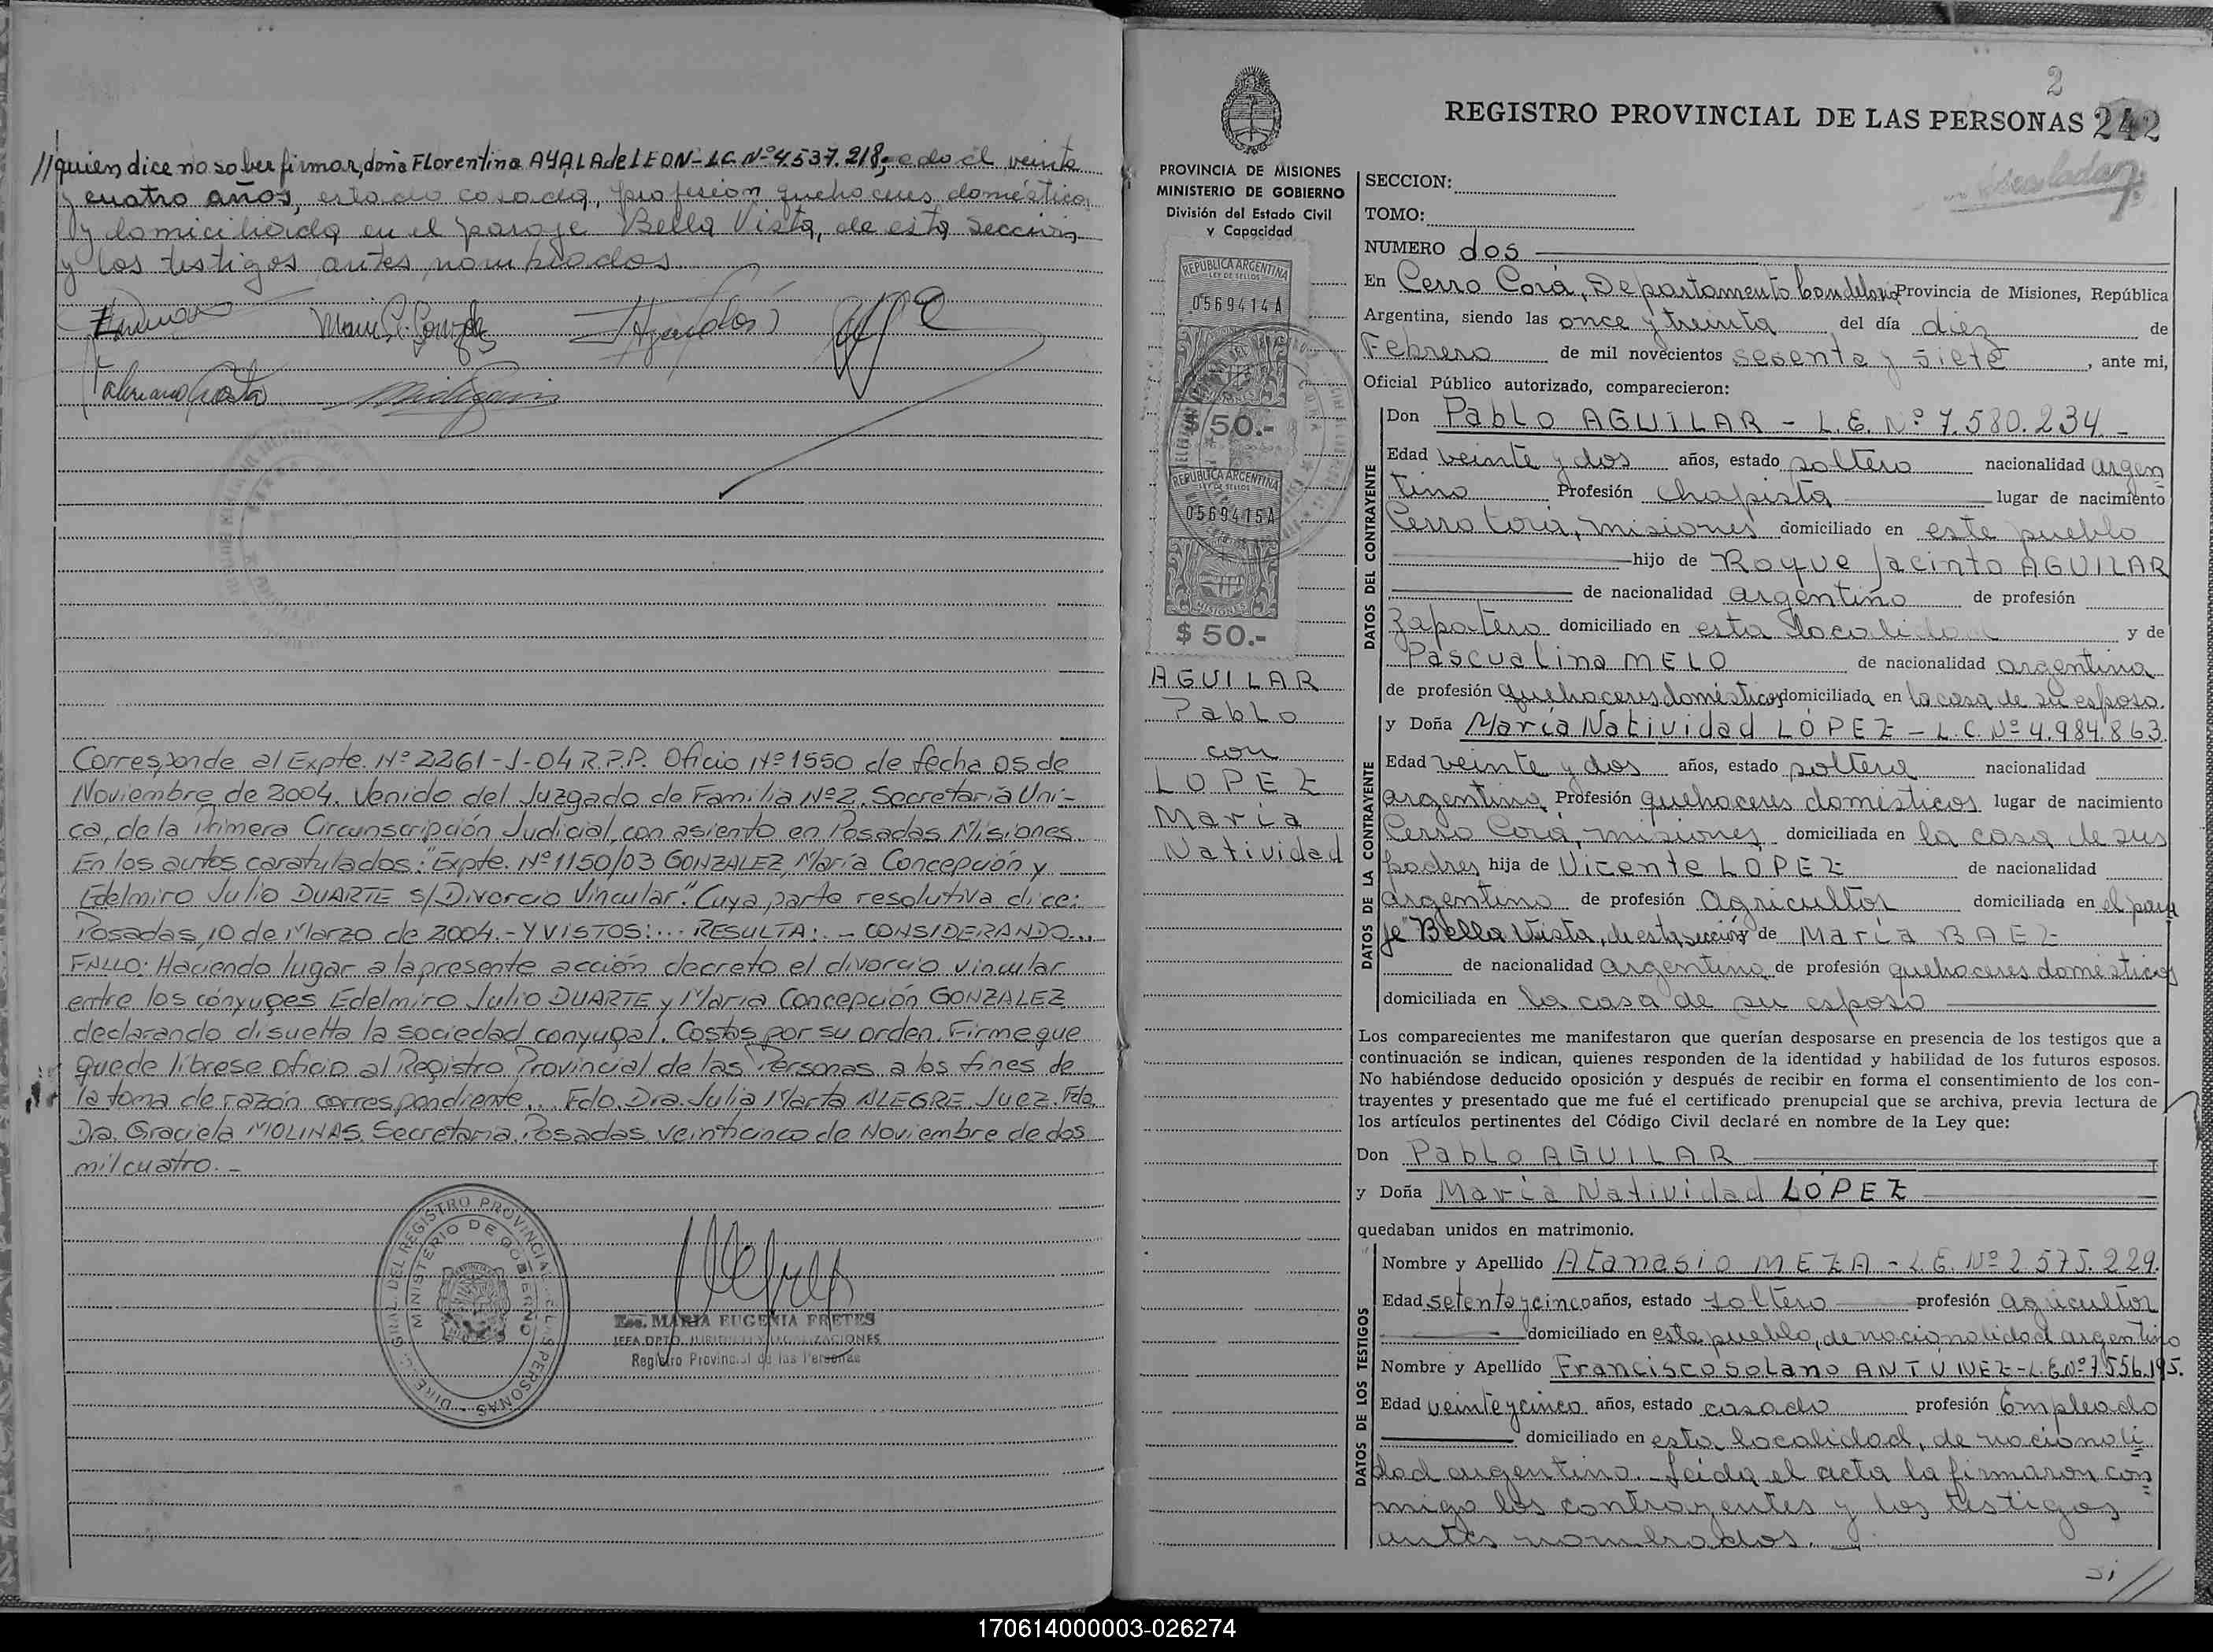 //quien dice no saber firmar, doña Florentina AYALA de LEON - L.C. Nº 4.537.218, edad veinte
y cuatro años, estado casada, profesión quehaceres domésticos
y domiciliada en el paraje Bella Vista, de esta Sección
y los testigos antes nombrados.
Corresponde al Expte. Nº 2261-J-04 R.P.P. Oficio Nº 1550 de fecha 05 de
Noviembre de 2004. Venido del Juzgado de Familia Nº 2, Secretaría Uni-
ca, de la Primera Circunscripción Judicial, con asiento en Posadas, Misiones
En los autos caratulados: "Expte. Nº 1150/03 GONZALEZ, María Concepción y
Edelmiro Julio DUARTE s/Divorcio Vincular." Cuya parte resolutiva dice:
Posadas, 10 de Marzo de 2004.- Y VISTOS:... RESULTA:.- CONSIDERANDO...
FALLO: Haciendo lugar a la presente acción decreto el divorcio vincular
entre los cónyuges Edelmiro Julio DUARTE y María Concepción GONZALEZ
declarando disuelta la sociedad conyugal. Costas por su orden. Firme que
quede líbrese oficio al Registro Provincial de las Personas a los fines de
la toma de razón correspondiente... Fdo. Dra. Julia Marta ALEGRE. Juez. Fdo.
Dra. Graciela MOLINAS. Secretaria. Posadas, veinticinco de Noviembre de dos
mil cuatro.-
DIREC. GRAL. DEL REGISTRO PROVINCIAL DE LAS PERSONAS
MINISTERIO DE GOBIERNO
Esc. MARIA EUGENIA FRETES
JEFA DPTO. JURIDICO Y LEGALIZACIONES
Registro Provincial de las Personas
2
REGISTRO PROVINCIAL DE LAS PERSONAS 242
PROVINCIA DE MISIONES
MINISTERIO DE GOBIERNO
División del Estado Civil
y Capacidad
REPUBLICA ARGENTINA
LEY DE SELLOS
0569414A
MISIONES
$ 50.-
REPUBLICA ARGENTINA
LEY DE SELLOS
0569415A
MISIONES
$ 50.-
AGUILAR
Pablo
con
LOPEZ
María
Natividad
SECCION:
TOMO:
NUMERO dos
En Cerro Corá, Departamento Candelaria Provincia de Misiones, República
Argentina, siendo las once y treinta del día diez de
Febrero de mil novecientos sesenta y siete, ante mi,
Oficial Público autorizado, comparecieron:
DATOS DEL CONTRAYENTE
Don Pablo AGUILAR - L.E. Nº 7.580.234 -
Edad veinte y dos años, estado soltero nacionalidad argen
tino Profesión chapista lugar de nacimiento
Cerro Corá, Misiones domiciliado en este pueblo
hijo de Roque Jacinto AGUILAR
de nacionalidad argentino de profesión
Zapatero domiciliado en esta localidad y de
Pascualina MELO de nacionalidad argentina
de profesión quehaceres domésticos domiciliada en la casa de su esposo.
DATOS DE LA CONTRAYENTE
y Doña María Natividad LÓPEZ - L.C. Nº 4.984.863.
Edad veinte y dos años, estado soltera nacionalidad
argentina Profesión quehaceres domésticos lugar de nacimiento
Cerro Corá, Misiones domiciliada en la casa de sus
padres hija de Vicente LOPEZ de nacionalidad
argentino de profesión Agricultor domiciliada en el para
je "Bella Vista, de esta sección y de María BAEZ
de nacionalidad argentina de profesión quehaceres domésticos
domiciliada en la casa de su esposo
Los comparecientes me manifestaron que querían desposarse en presencia de los testigos que a
continuación se indican, quienes responden de la identidad y habilidad de los futuros esposos.
No habiéndose deducido oposición y después de recibir en forma el consentimiento de los con-
trayentes y presentado que me fué el certificado prenupcial que se archiva, previa lectura de
los artículos pertinentes del Código Civil declaré en nombre de la Ley que:
Don Pablo AGUILAR
y Doña María Natividad LÓPEZ
quedaban unidos en matrimonio.
DATOS DE LOS TESTIGOS
Nombre y Apellido Atanasio MEZA - L.E. Nº 2.575.229.
Edad setenta y cinco años, estado soltero profesión agricultor
domiciliado en este pueblo, de nacionalidad argentino
Nombre y Apellido Francisco Solano ANTÚNEZ - L.E. Nº 7.556.195.
Edad veinte y cinco años, estado casado profesión Empleado
domiciliado en esta localidad, de nacionali
dad argentino. Leída el acta la firmaron con
migo los contrayentes y los testigos
antes nombrados.
170614000003-026274